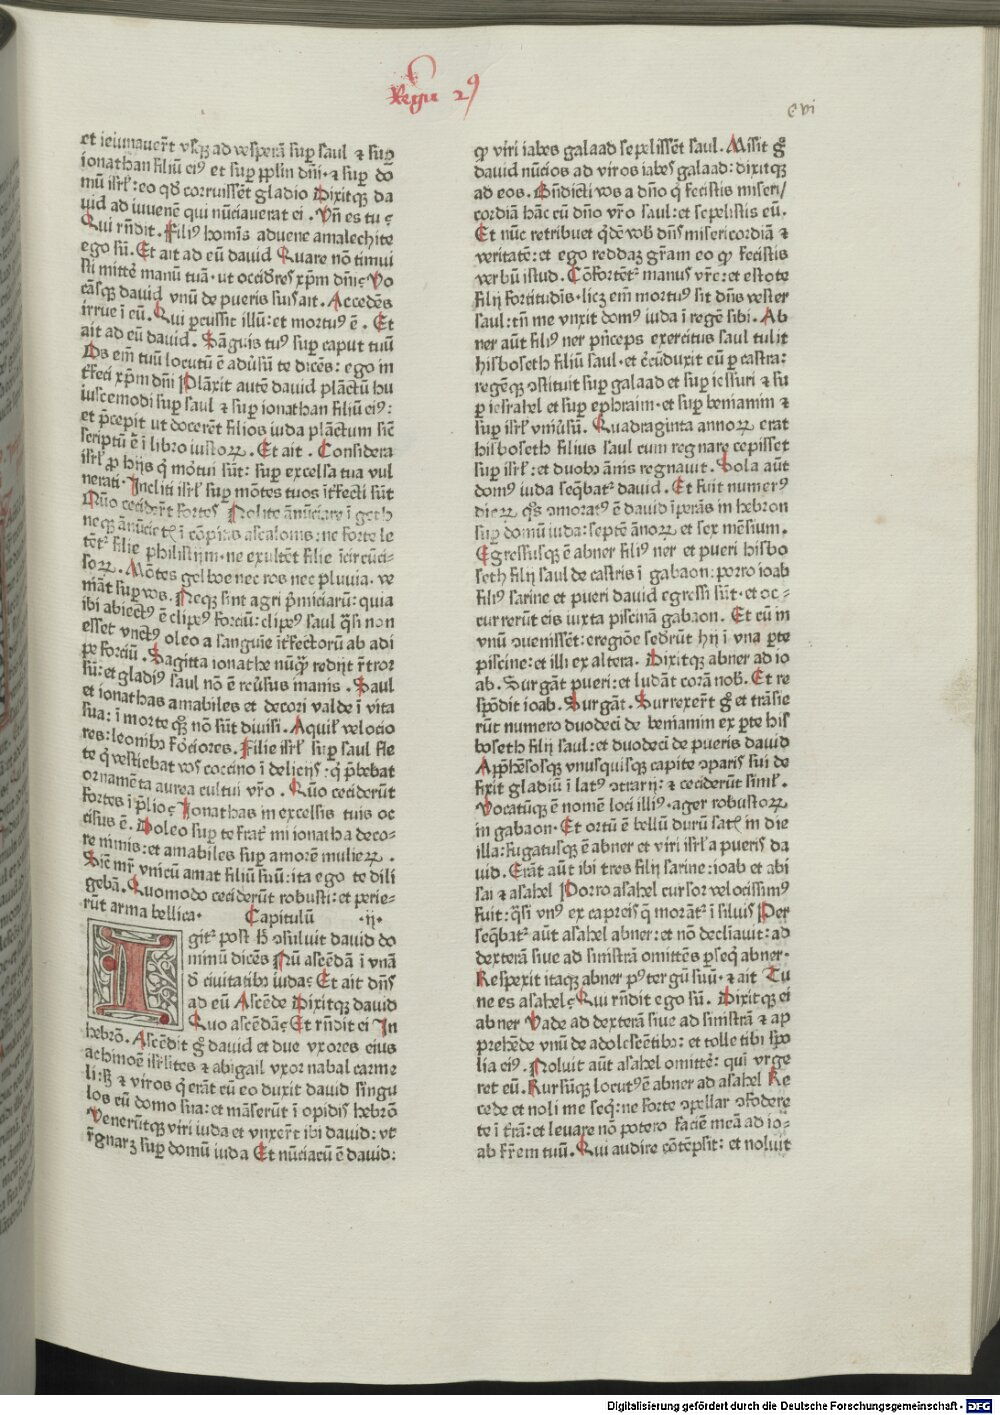 Regum 2⁹
cvi
et ieiunauer̄t vsqꝫ ad vesperā suꝑ saul ⁊ suꝑ
ionathan filiū ei⁹ et suꝑ ppl̄m dn̄i · ⁊ suꝑ do
mū isrl̄: eo qd̓ corruissēt gladio Dixitqꝫ da
uid ad iuuenē qui nūciauerat ei . Vn̄ es tu ?
Qui rn̄dit . Fili⁹ hominis aduene amalechite
ego sū. Et ait ad eū dauid Quare nō timui
sti mittē manū tuā · ut occideres xp̄m dn̄i ? Vo
cāsqꝫ dauid vnū de pueris suis ait. Accedēs
irrue ī eū. Qui ꝑcussit illū: et mortu⁹ ē . Et
ait ad eū dauid. Sāguis tu⁹ suꝑ caput tuū
Os em̄ tuū locutū ē aduersū te dicēs: ego in
t̄feci xp̄m dn̄i Plāxit autē dauid plāctū hu
iuscemodi suꝑ saul ⁊ suꝑ ionathan filiū ei⁹:
et p̄cepit ut docerēt filios iuda plāctum sic̄
scriptū ē ī libro iustoꝝ. Et ait . Considera
isrl̄ ꝓ hijs q̄ mōtui sūt: suꝑ excelsa tua vul
nerati. Incliti isrl̄ suꝑ mōtes tuos īt̄fecti sūt
Quō cecider̄t fortes Nolite ānūciare ī geth
neqꝫ ānūcietꝭ ī cōpitis ascalonis: ne forte le
tēt᷑ filie philistijm · ne exultēt filie īcircūci⸗
soꝝ. Mōtes gelboe nec ros nec pluuia. ve
niāt suꝑ vos. Neqꝫ sint agri p̄miciarū: quia
ibi abiect⁹ ē clipe⁹ forciū: clipe⁹ saul q̄si non
esset vnct⁹ oleo a sanguīe īt̄fectorū ab adi
pe forciū. Sagitta ionathe nūq̄ꝫ redijt r̄tror
sū: et gladi⁹ saul nō ē reuersus inanis. Saul
et ionathas amabiles et decori valde ī vita
sua: ī morte qꝫ nō sūt diuisi. Aquil̄ velocio
res: leonibꝫ fōciores. Filie isrl̄ suꝑ saul fle
te q̓ vestiebat vos coccino ī delicijs: q̓ p̄bebat
ornamēta aurea cultui vr̄o. Quō ceciderūt
fortes ī p̄lio ? Jonathas in excelsis tuis oc
cisus ē. Doleo suꝑ te frat̄ mi ionatha deco⸗
re nimis: et amabiles suꝑ amorē mulieꝝ .
Sic̄ mr̄ vnicū amat filiū suū: ita ego te dili
gebā. Quomodo ceciderūt robusti: et perie⸗
rūt arma bellica· Capitulū ·ij·
Igit᷑ post h̄ ↄsuluit dauid do
minū dicēs Nū ascēdā ī vnā
d̓ ciuitatibꝫ iuda ? Et ait dn̄s
ad eū Ascēde Dixitqꝫ dauid
Quo ascēdā ? Et rn̄dit ei In
hebrō. Ascēdit g̊ dauid et due vxores eius
achinoē isrl̄ites ⁊ abigail vxor nabal carme
li: sꝫ ⁊ viros q̓ erāt cū eo duxit dauid singu
los cū domo sua: et māserūt ī opidis hebrō
Venerūtqꝫ viri iuda et vnxer̄t ibi dauid: vt
r̄gnarꝫ suꝑ domū iuda Et nūciatū ē dauid:
qꝙ viri iabes galaad sepelissēt saul. Misit g̊
dauid nūcios ad viros iabes galaad: dixitqꝫ
ad eos. Bn̄dicti vos a dn̄o q̓ fecistis miseri/
cordiā hāc cū dn̄o vr̄o saul: et sepelistis eū.
Et nūc retribuet q̓dē vob̄ dn̄s misericordiā ⁊
veritatē: et ego reddaꝫ gr̄am eo qꝙ fecistis
verbū istud. Cōfortēt᷑ manus vr̄e: et estote
filij fortitudis · licꝫ em̄ mortu⁹ sit dn̄s vester
saul: tn̄ me vnxit dom⁹ iuda ī regē sibi. Ab
ner aūt fili⁹ ner pn̄ceps exercitus saul tulit
hisboseth filiū saul · et c̄cūduxit eū ꝑ castra:
regēqꝫ ↄstituit suꝑ galaad et suꝑ iessuri ⁊ su
ꝑ iesrahel et suꝑ ephraim · et suꝑ beniamin ⁊
suꝑ isrl̄ vniūsū. Quadraginta annoꝝ erat
hisboseth filius saul cum regnare cepisset
suꝑ isrl̄: et duobꝫ ānis regnauit. Sola aūt
dom⁹ iuda seq̄bat᷑ dauid. Et fuit numer⁹
dieꝝ q̊s ↄmorat⁹ ē dauid īperās in hebron
suꝑ domū iuda: septē ānoꝝ et sex mēsium.
Egressusqꝫ ē abner fili⁹ ner et pueri hisbo
seth filij saul de castris ī gabaon: porro ioab
fili⁹ sarine et pueri dauid egressi sūt · et oc⸗
currerūt eis iuxta piscinā gabaon. Et cū in
vnū ↄuenissēt: e regiōe sederūt hij ī vna ꝑte
piscine: et illi ex altera. Dixitqꝫ abner ad io
ab. Surgāt pueri: et ludāt corā nob̄. Et re
spōdit ioab. Surgāt. Surrexer̄t g̊ et trāsie
rūt numero duodeci de beniamin ex ꝑte his
boseth filij saul: et duodeci de pueris dauid
Apphēsosqꝫ vnusquisqꝫ capite ↄparis sui de
fixit gladiū ī lat⁹ ↄtrarij: ⁊ ceciderūt siml̄.
Vocatūqꝫ ē nomē loci illi⁹ · ager robustoꝝ
in gabaon · Et ortū ē bellū durū satꝭ in die
illa: fugatusqꝫ ē abner et viri isrl̄ a pueris da
uid. Erāt aūt ibi tres filij sarine: ioab et abi
sai ⁊ asahel Porro asahel cursor velocissim⁹
fuit: q̄si vn⁹ ex capreis q̄ morāt᷑ ī siluis Per
seq̄bat᷑ aūt asahel abner: et nō decliauit: ad
dexterā siue ad sinistrā omittēs ꝑseq̄ abner·
Respexit itaqꝫ abner p⁹ tergū suū · ⁊ ait Tu
ne es asahel ? Qui rn̄dit ego sū. Dixitqꝫ ei
abner Vade ad dexterā siue ad sinistrā ⁊ ap
prehēde vnū de adolescētibꝫ: et tolle tibi spo
lia ei⁹. Noluit aūt asahel omittē: quī vrge
ret eū. Rursūqꝫ locut⁹ ē abner ad asahel Re
cede et noli me seq̄: ne forte ↄpellar ↄfodere
te ī t̄rā: et leuare nō potero faciē meā ad io⸗
ab fr̄em tuū. Qui audire cōtēpsit: et noluit
Digitalisierung gefördert durch die Deutsche Forschungsgemeinschaft - DFG